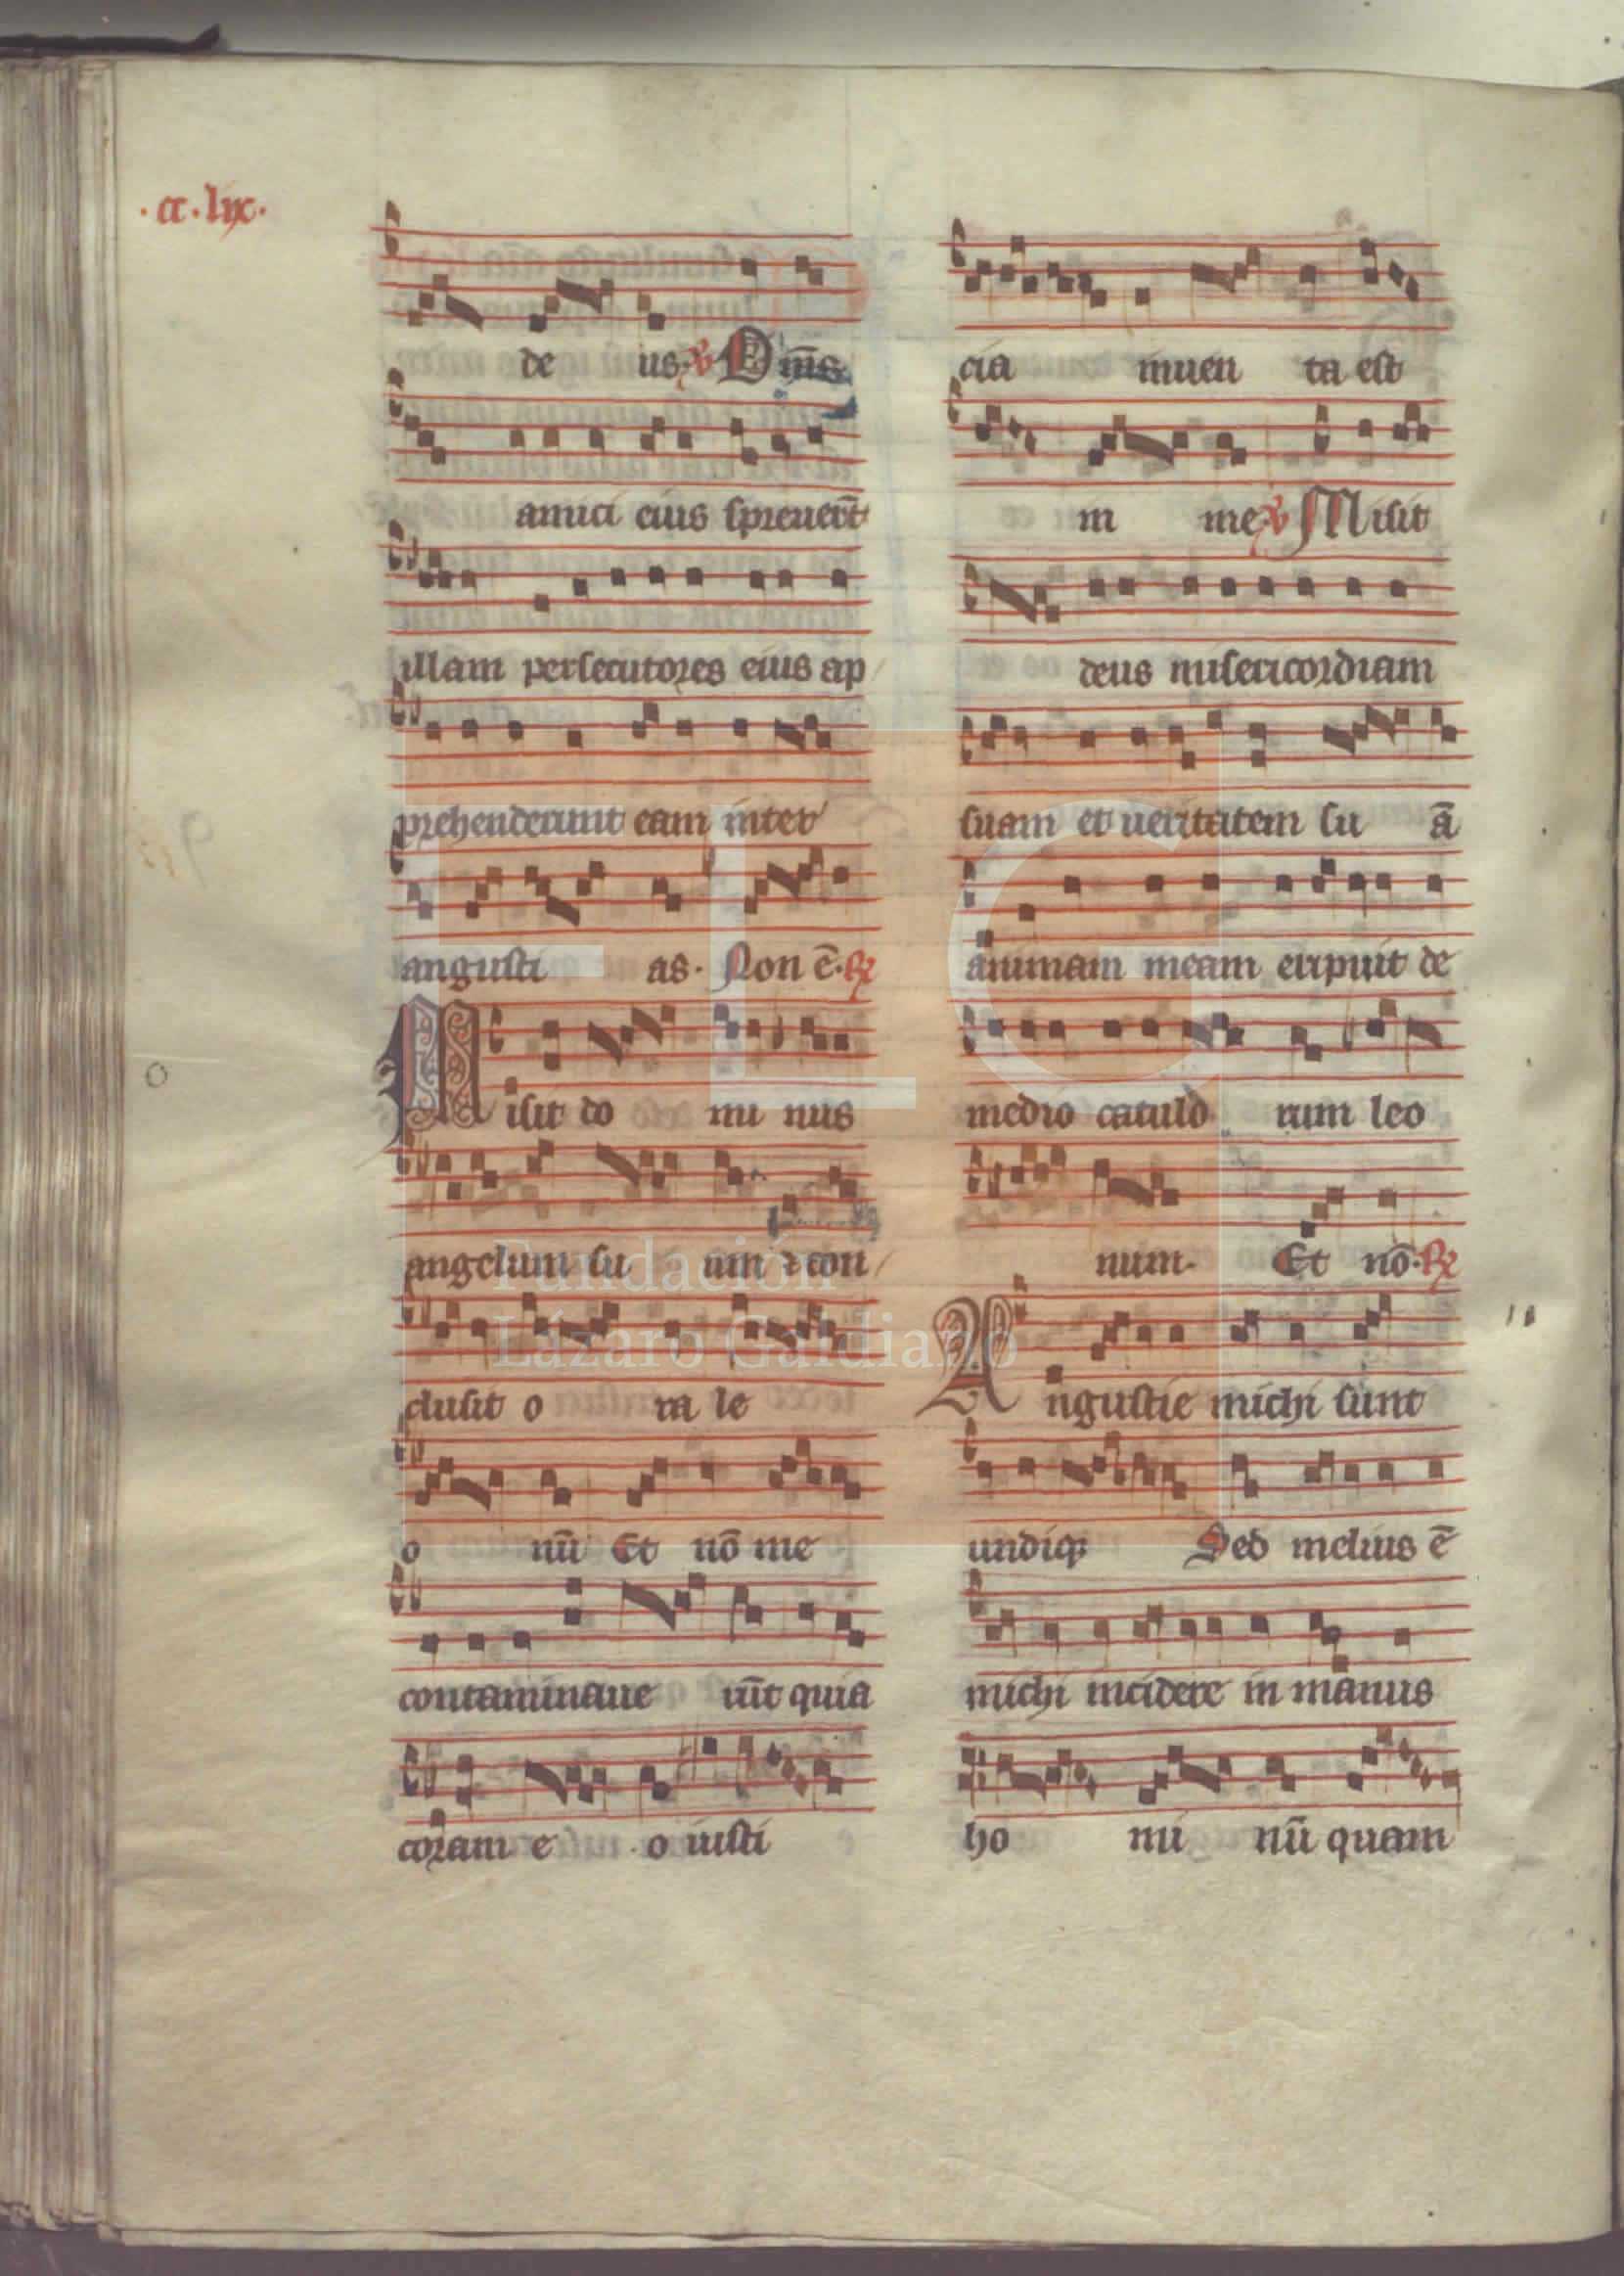 ·cc·lix·
de us· ℣ Om̄s
amici eius spreuer̄t
illam persecutores eius ap
prehenderunt eam inter
angusti as· Non ē· ℟
Misit do mi nus
angelum su um ⁊ con
clusit o ra le
o nū Et nō me
contaminaue rūt quia
coram e o iusti
cia inuen ta est
in me· ℣ Misit
deus misericordiam
suam et ueritatem su ā
animam meam eripuit de
medio catulo rum leo
num· Et nō· ℟
Angustie michi sunt
undiqꝫ Sed melius ē
michi incidere in manus
ho mi nū quam
FLG
Fundación
Lázaro Galdiano